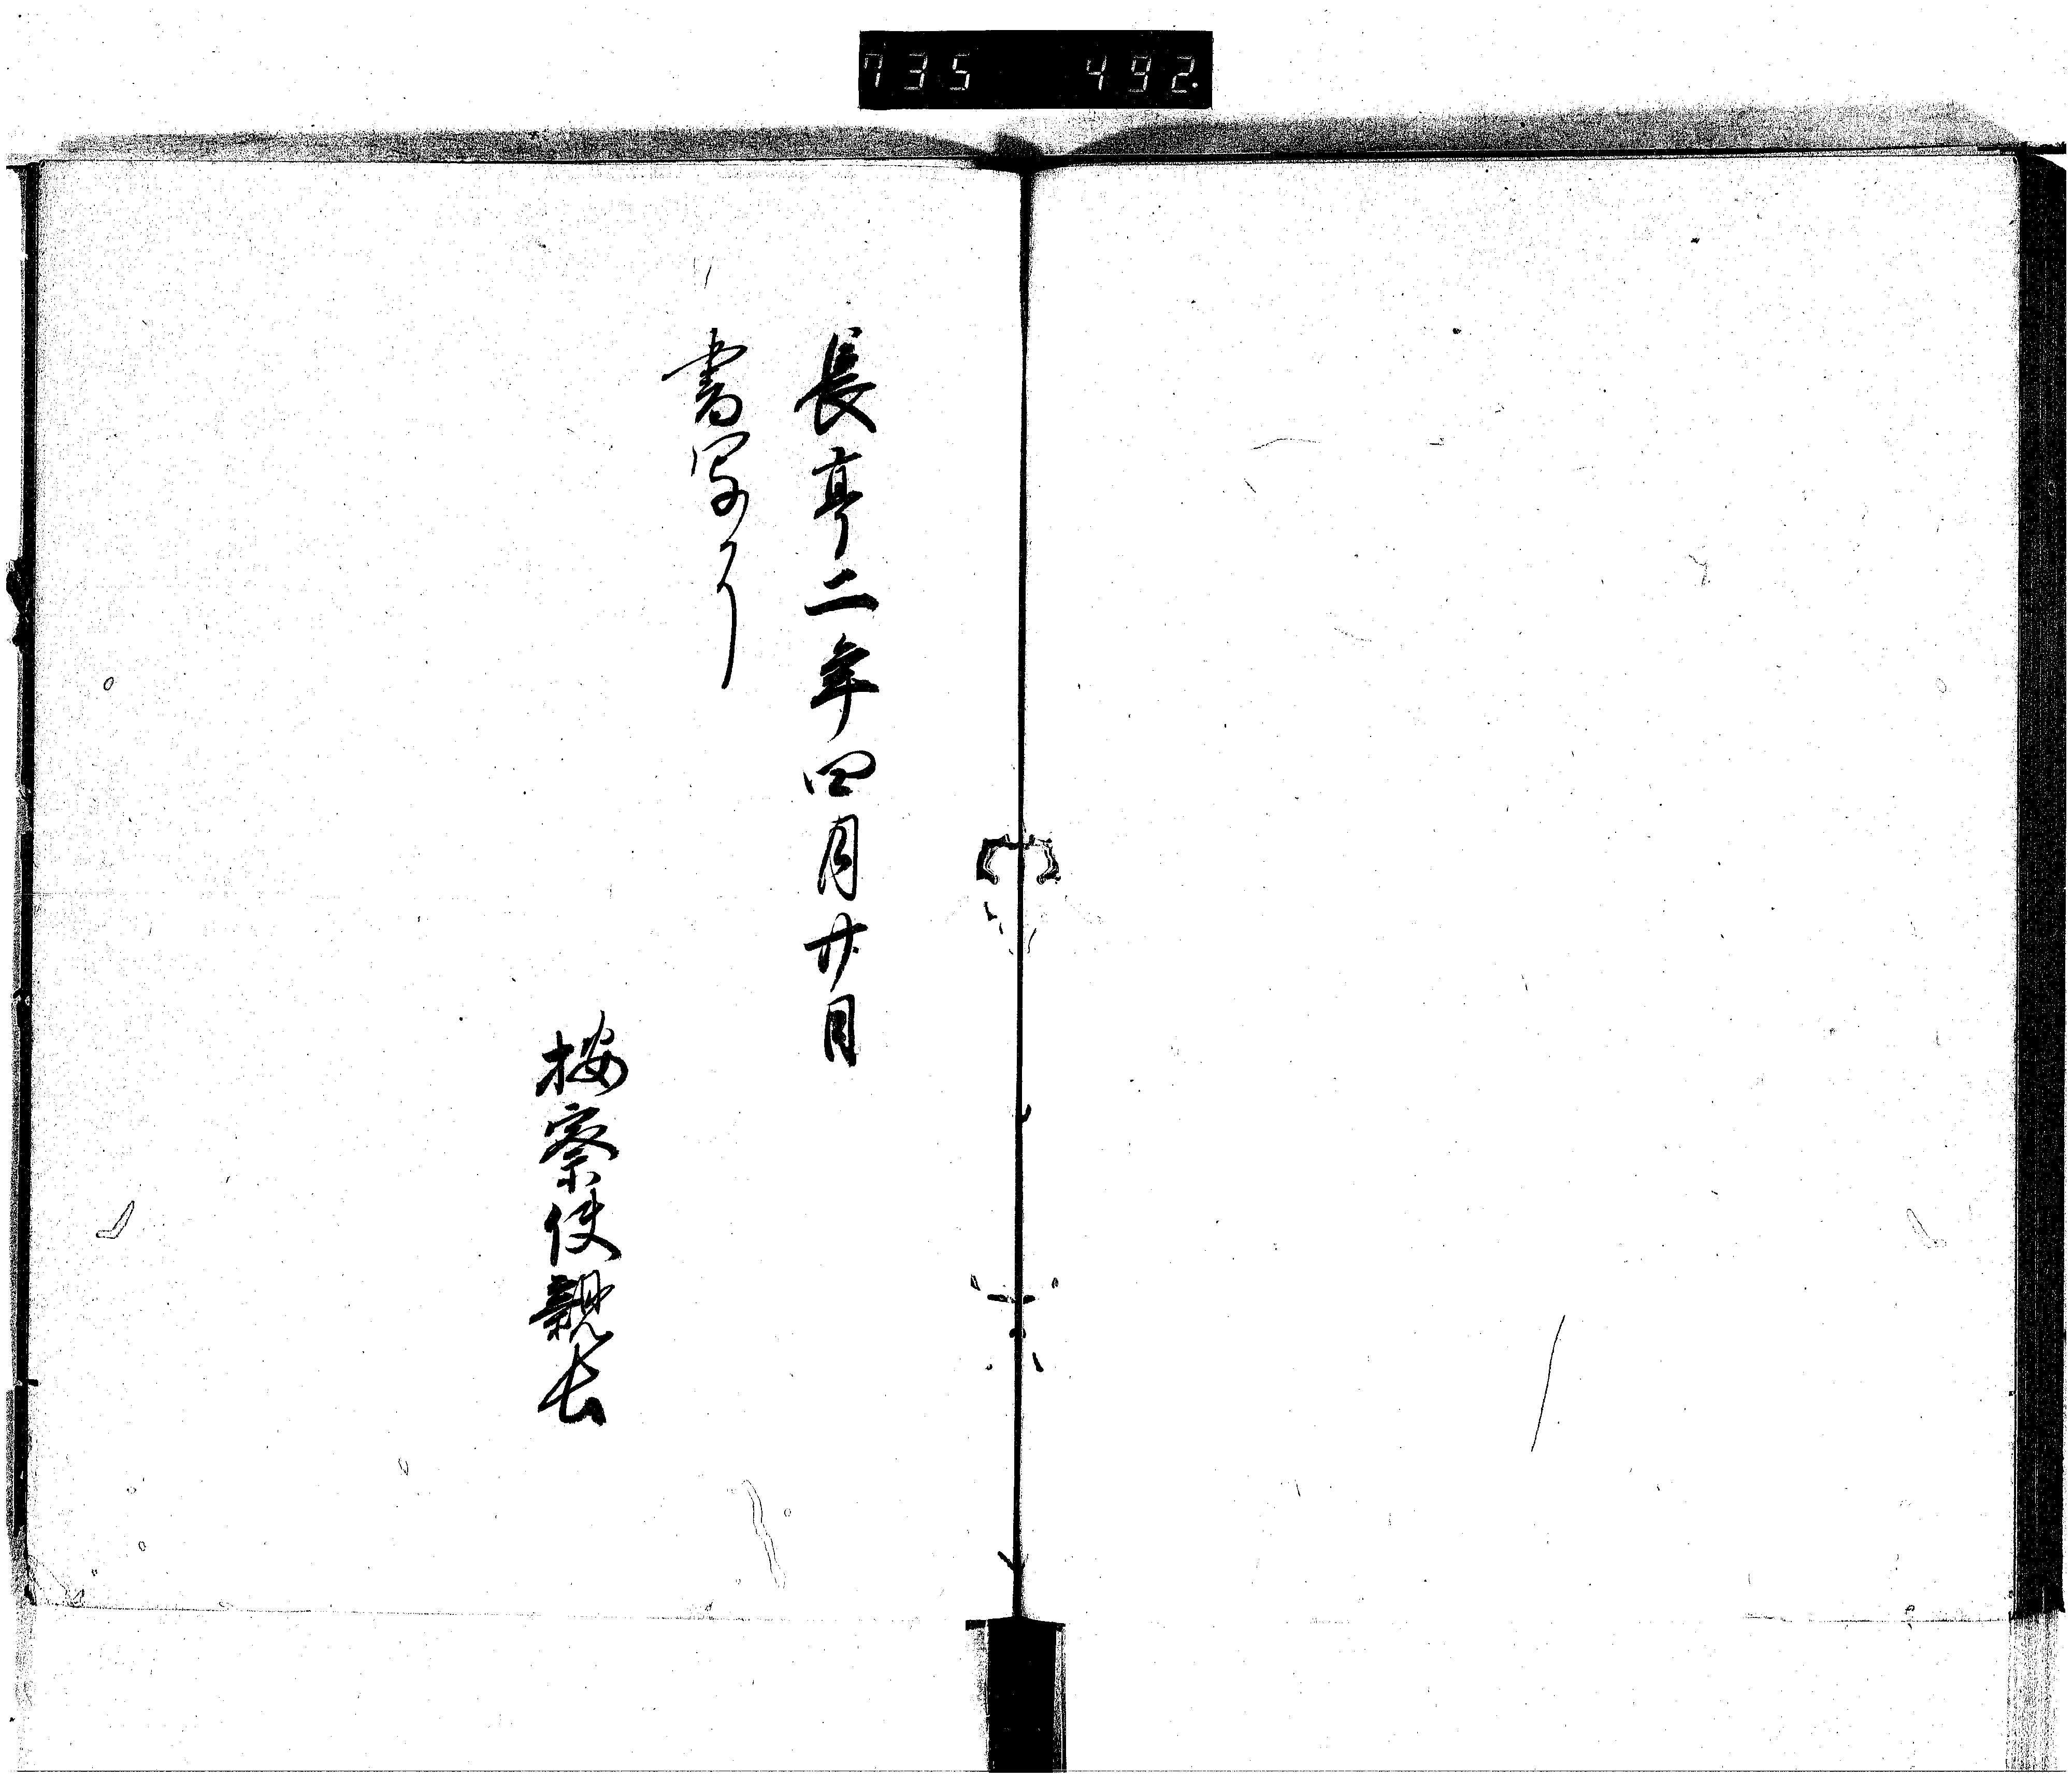 735 492
長享二年四月廿日
書写了
按察使親長